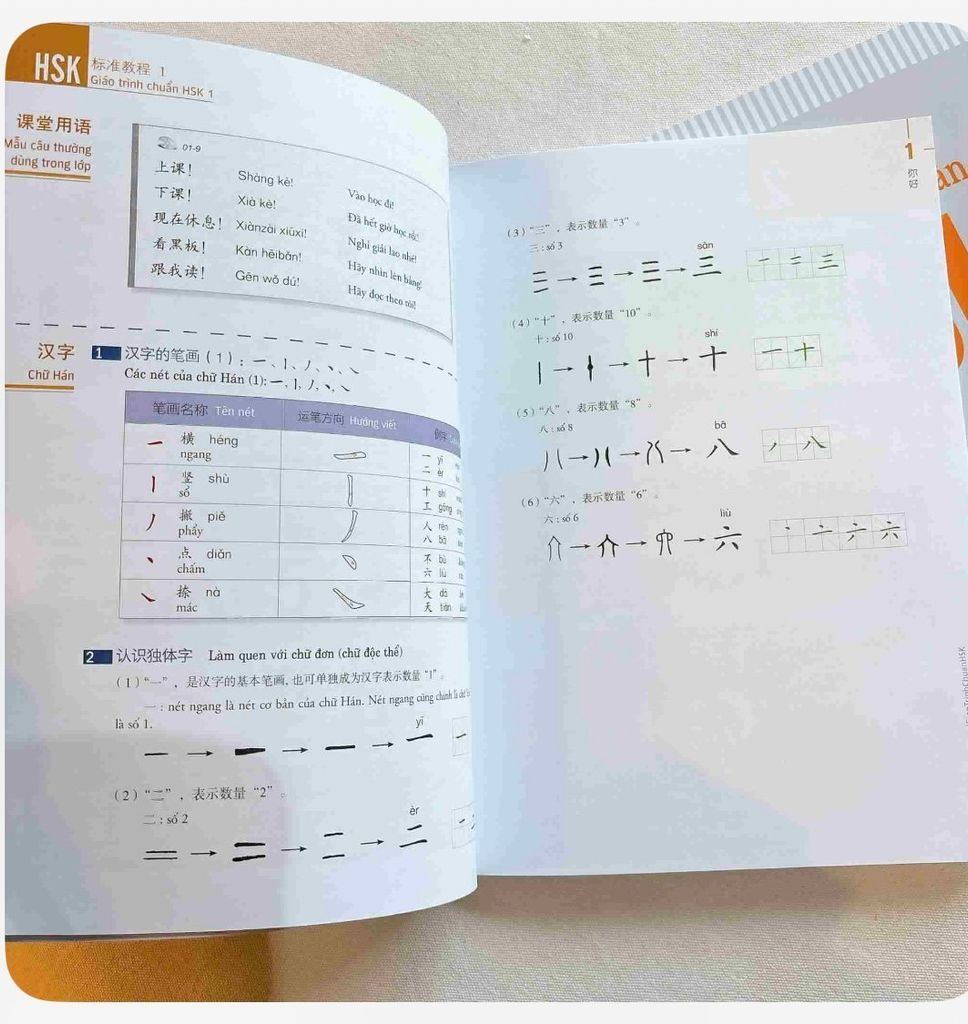 HSK 标准教程 1
Giáo trình chuẩn HSK 1
课堂用语
Mẫu câu thường
dùng trong lớp
01-9
上课! Shàng kè! Vào học đi!
下课! Xià kè! Đã hết giờ học rồi!
现在休息! Xiànzài xiūxi! Nghỉ giải lao nhé!
看黑板! Kàn hēibǎn! Hãy nhìn lên bảng!
跟我读! Gēn wǒ dú! Hãy đọc theo tôi!
汉字
Chữ Hán
1 汉字的笔画(1): 一、丨、丿、丶、㇏
Các nét của chữ Hán (1): 一、丨、丿、丶、㇏
笔画名称 Tên nét 运笔方向 Hướng viết 例字
一 横 héng
ngang
一 yī
二 èr
丨 竖 shù
sổ
十 shí
工 gōng
丿 撇 piě
phẩy
人 rén
八 bā
丶 点 diǎn
chấm
不 bù
六 liù
㇏ 捺 nà
mác
大 dà
天 tiān
2 认识独体字 Làm quen với chữ đơn (chữ độc thể)
(1)“一”,是汉字的基本笔画,也可单独成为汉字表示数量“1”。
一 : nét ngang là nét cơ bản của chữ Hán. Nét ngang cũng chính là chữ
là số 1.
yī
一 → 一 → 一 → 一 一
(2)“二”,表示数量“2”。
二 : số 2
èr
二 → 二 → 二 → 二
1
你好
(3)“三”,表示数量“3”。
三 : số 3
sān
三 → 三 → 三 → 三 一 二 三
(4)“十”,表示数量“10”。
十 : số 10
shí
丨 → → 十 → 十 一 十
(5)“八”,表示数量“8”。
八 : số 8
bā
八 → 八 → 八 → 八 丿 八
(6)“六”,表示数量“6”。
六 : số 6
liù
→ → → 六 丶 亠 六 六
an